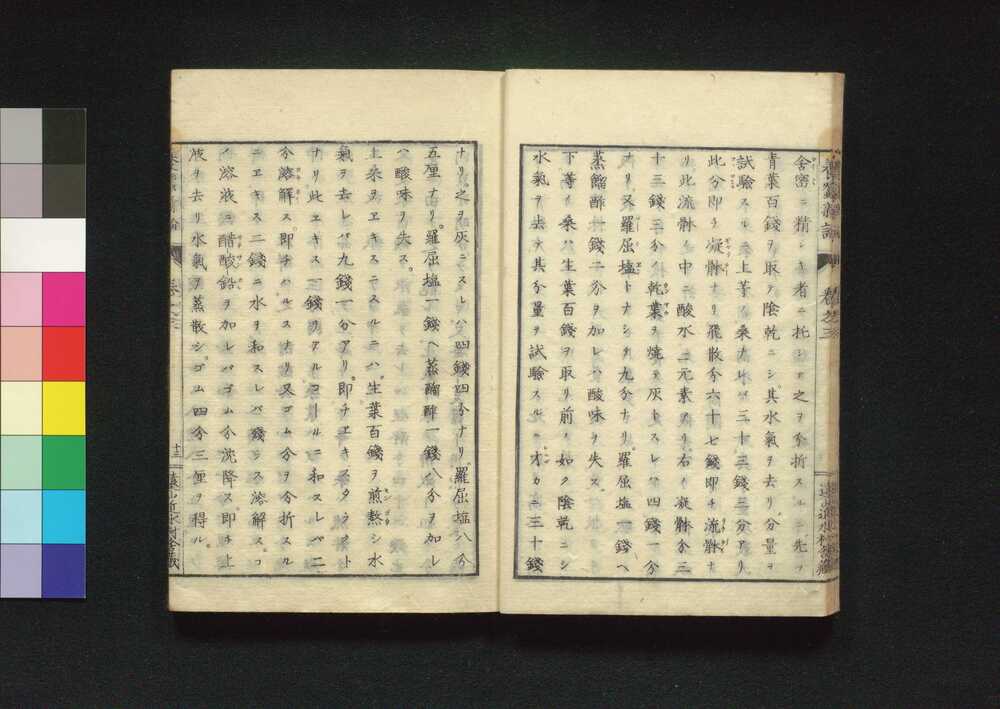 舎密ニ精シキ者ニ托シテ之ヲ分折スルニ先ツ
青葉百錢ヲ取テ陰乾ニシ其水氣ヲ去リ分量ヲ
試驗スルニ上等ノ桑ナレバ三十三錢三分アリ
此分即チ凝體ナリ飛散分六十七錢即チ流體ナ
リ此流體ノ中ニ酸水二元素アリ右ノ凝體分三
十三錢三分ノ乾葉ヲ焼テ灰トスレバ四錢一分
ナリ又羅屈塩トナシタル九分ナリ羅屈塩一錢ヘ
蒸餾酢一錢二分ヲ加レハ酸味ヲ失ス
下等ノ桑ハ生葉百錢ヲ取リ前ノ如ク陰乾ニシ
水氣ヲ去テ其分量ヲ試驗スルニ才カニ三十錢
ナリ之ヲ灰ニスレハ四錢四分ナリ羅屈塩八分
五厘ナリ羅屈塩一錢ヘ蒸餾酢一錢八分ヲ加レ
ハ酸味ヲ失ス
上桑ヲエキスニスルニハ生葉百錢ヲ煎熬シ水
氣ヲ去レバ九錢一分アリ即チエキス
ナリ此エキス三錢ヲアルコートルニ和スレバ二
分溶解ス即チハルスナリ又ゴム分ヲ分折スル
ニエキス二錢ニ水ヲ和スレバ殘ラス溶解スコ
ノ溶液ニ醋酸鉛ヲ加レバゴム分沈降ス即チ上
液ヲ去リ水氣ヲ蒸散シゴム四分三厘ヲ得ル
卷之三
十三